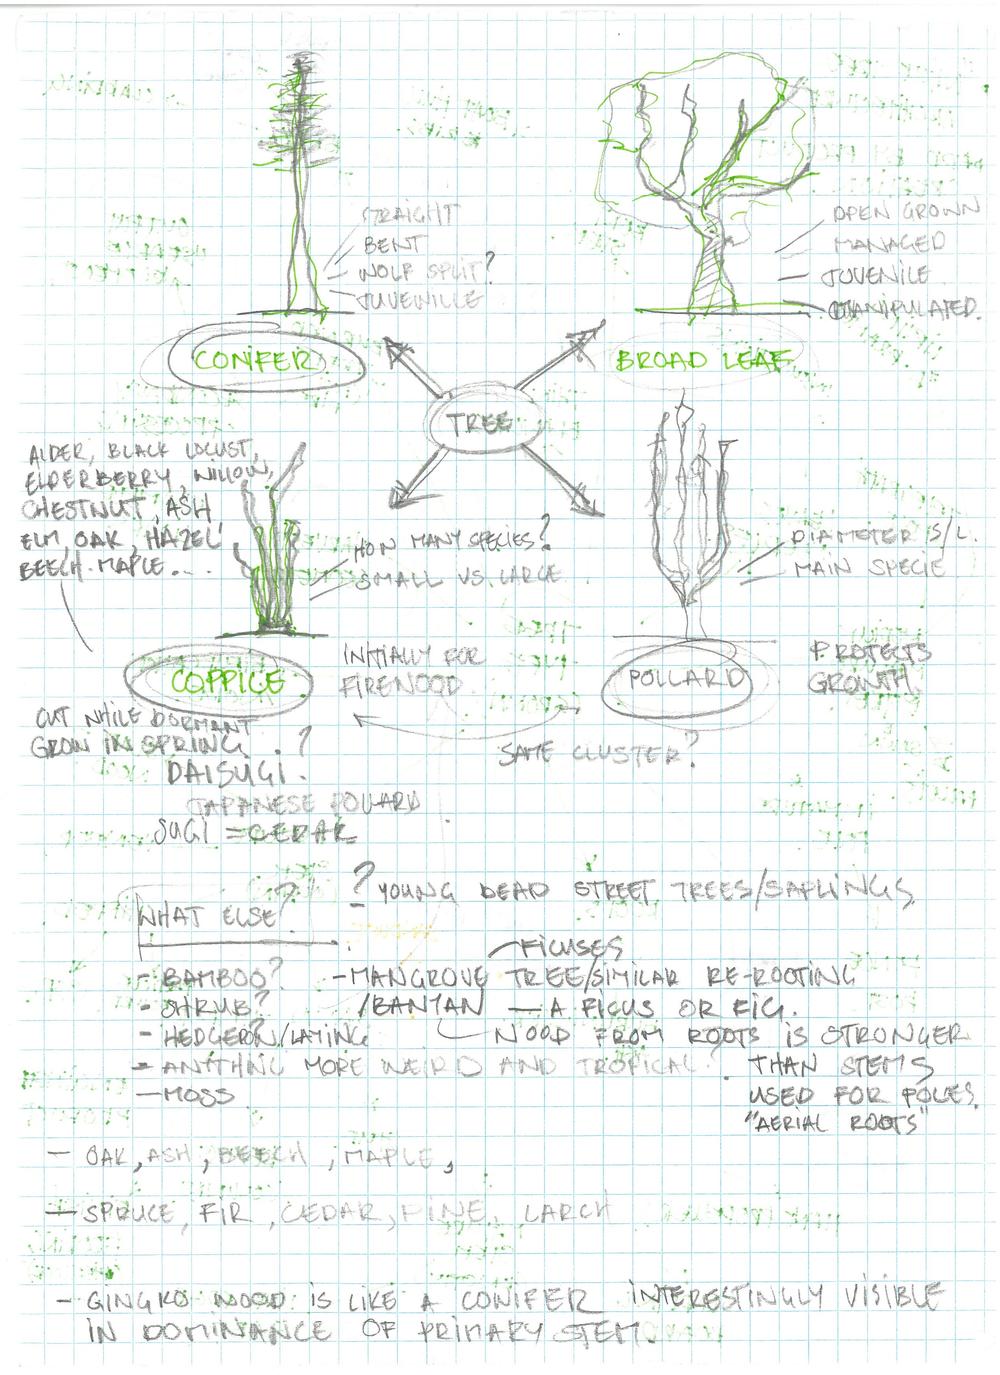 STRAIGHT
BENT
WOLF SPLIT?
JUVENILLE
CONIFER
OPEN GROWN
MANAGED
JUVENILE
MANIPULATED.
BROAD LEAF
TREE
ALDER, BLACK LOCUST,
ELDERBERRY, WILLOW,
CHESTNUT, ASH
ELM, OAK, HAZEL
BEECH. MAPLE...
HOW MANY SPECIES?
SMALL VS. LARGE
COPPICE
INITIALLY FOR
FIREWOOD
DIAMETER S/L.
MAIN SPECIE
POLLARD
PROTECTS
GROWTH.
SAME CLUSTER?
CUT WHILE DORMANT
GROW IN SPRING. ?
DAISUGI.
JAPANESE POLLARD
SUGI = CEDAR
WHAT ELSE?
? YOUNG DEAD STREET TREES/SAPLINGS
- BAMBOO?
- SHRUB?
- HEDGEROW?/LAYING
- ANYTHING MORE WEIRD AND TROPICAL?
- MOSS
FICUSES
- MANGROVE TREE/SIMILAR RE-ROOTING
/BANYAN — A FICUS OR FIG.
WOOD FROM ROOTS IS STRONGER
THAN STEMS
USED FOR POLES.
"AERIAL ROOTS"
— OAK, ASH, BEECH, MAPLE,
— SPRUCE, FIR, CEDAR, PINE, LARCH
- GINGKO WOOD IS LIKE A CONIFER INTERESTINGLY VISIBLE
IN DOMINANCE OF PRIMARY STEM.